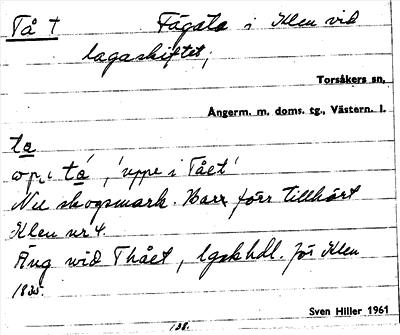 Tå †   Fägata i Klen vid
lagaskiftet;
Torsåkers sn,
Ångerm. m. doms. tg., Västern. l.
ta
op i tá, 'uppe i Tået'
Nu skogsmark. Har förr tillhört
Klen nr 4.
Äng wid Thået, lgskhdl. för Klen
1835.
Sven Hiller 1961
138.